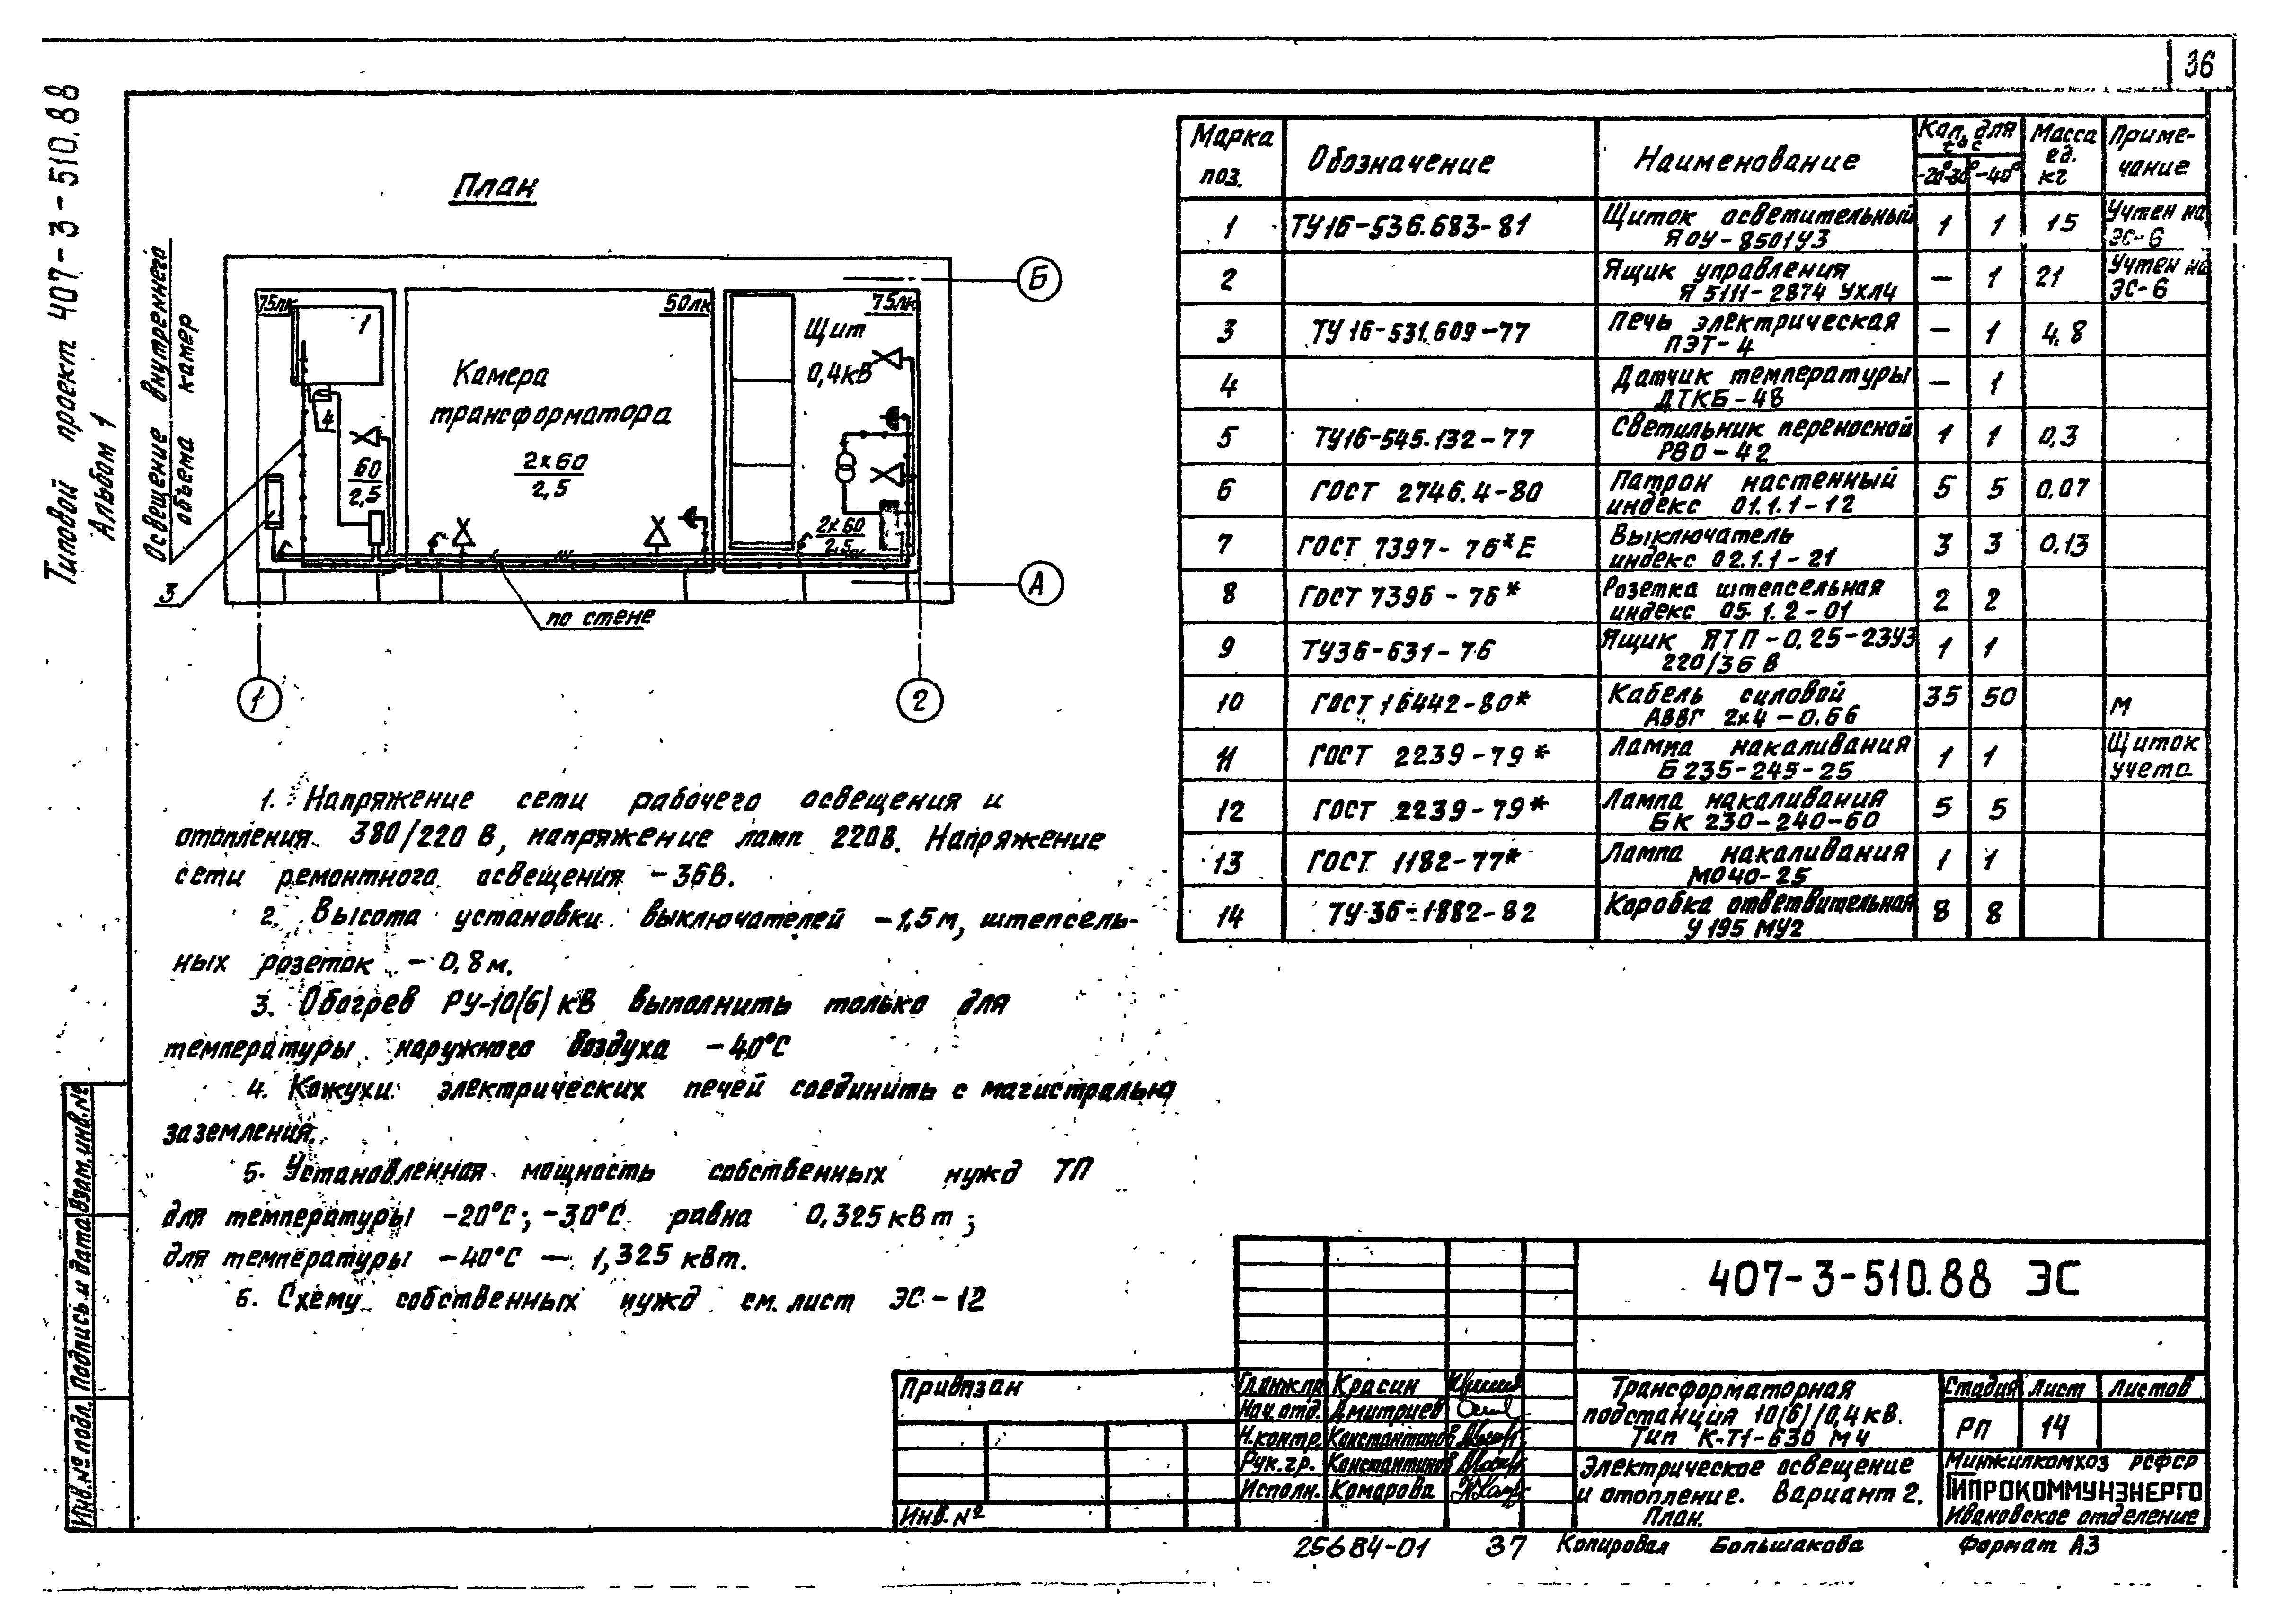 36
Типовой проект 407-3-510.88
Альбом 1
Освещение внутреннего
объема камер
План
75лк
1
4
60
2,5
3
Камера
трансформатора
50лк
2х60
2,5
Щит
0,4кВ
75лк
2х60
2,5
по стене
Б
А
1
2
Марка поз. Обозначение Наименование Кол. для t°в°с -20°-30° -40° Масса ед. кг Приме-чание
1 ТУ16-536.683-81 Щиток осветительный ЯОУ-8501У3 1 1 15 Учтен на ЭС-6
2 Ящик управления Я5111-2874 УХЛ4 — 1 21 Учтен на ЭС-6
3 ТУ16-531.609-77 Печь электрическая ПЭТ-4 — 1 4.8
4 Датчик температуры ДТКБ-48 — 1
5 ТУ16-545.132-77 Светильник переносной РВО-42 1 1 0,3
6 ГОСТ 2746.4-80 Патрон настенный индекс 01.1.1-12 5 5 0.07
7 ГОСТ 7397-76*Е Выключатель индекс 02.1.1-21 3 3 0.13
8 ГОСТ 7396-76* Розетка штепсельная индекс 05.1.2-01 2 2
9 ТУ36-631-76 Ящик ЯТП-0,25-23У3 220/36 В 1 1
10 ГОСТ 16442-80* Кабель силовой АВВГ 2х4-0.66 35 50 м
11 ГОСТ 2239-79* Лампа накаливания Б235-245-25 1 1 Щиток учета
12 ГОСТ 2239-79* Лампа накаливания БК 230-240-60 5 5
13 ГОСТ 1182-77* Лампа накаливания МО40-25 1 1
14 ТУ36-1882-82 Коробка ответвительная У195 МУ2 8 8
1. Напряжение сети рабочего освещения и
отопления 380/220 В, напряжение ламп 220В. Напряжение
сети ремонтного освещения -36В.
2. Высота установки выключателей -1,5м, штепсель-
ных розеток - 0,8м.
3. Обогрев РУ-10(6)кВ выполнить только для
температуры наружного воздуха -40°С
4. Кожухи электрических печей соединить с магистралью
заземления.
5. Установленная мощность собственных нужд ТП
для температуры -20°С; -30°С равна 0,325кВт;
для температуры -40°С — 1,325 кВт.
6. Схему собственных нужд см. лист ЭС-12
Взам.инв.№
Подпись и дата
Инв.№ подл.
407-3-510.88 ЭС
Привязан
Инв.№
Гл.инж.пр Красин
Нач.отд. Дмитриев
Н.контр. Константинов
Рук.гр. Константинов
Исполн. Комарова
Трансформаторная
подстанция 10(6)/0,4кВ.
Тип К-Т1-630 М4
Стадия Лист Листов
РП 14
Электрическое освещение
и отопление. Вариант 2.
План.
Минжилкомхоз РСФСР
ГИПРОКОММУНЭНЕРГО
Ивановское отделение
25684-01 37 Копировал Большакова Формат А3